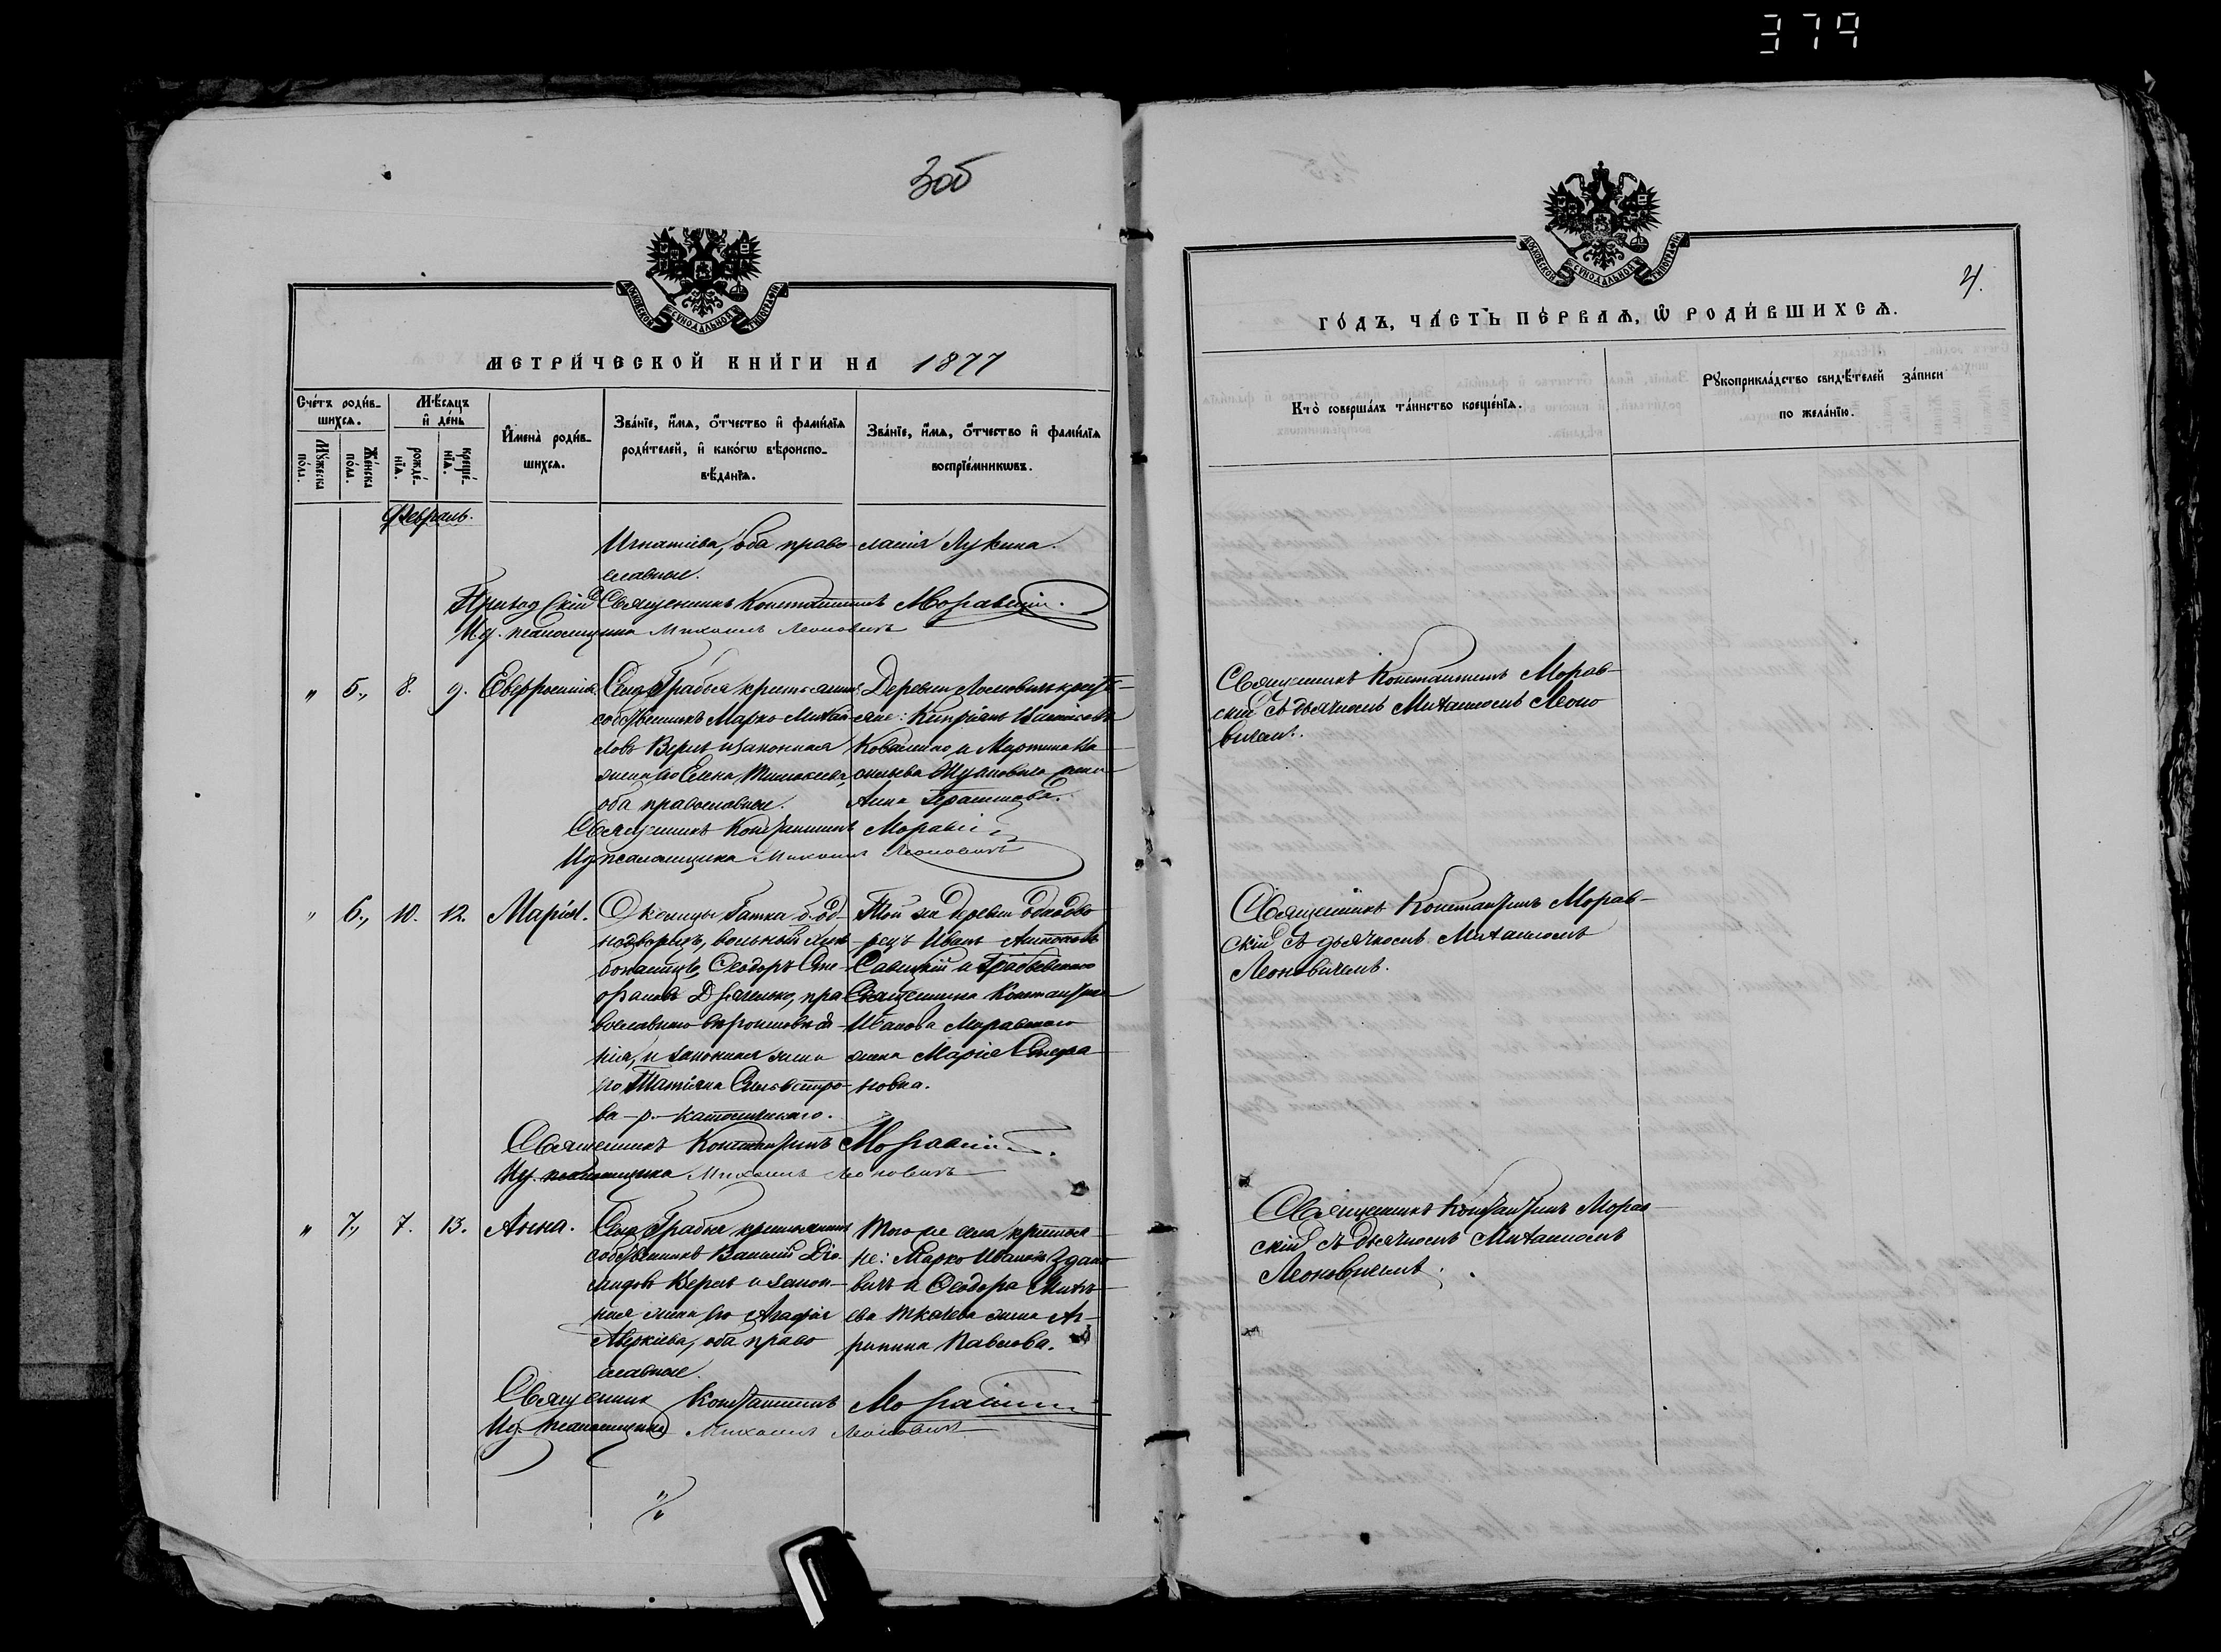 379
3об
МОСКОВСКОЙ СѴНОДАЛЬНОЙ ТИПОГРАФІИ
МЕТРИ́ЧЕСКОЙ КНИ́ГИ НА 1877
Сче́тъ роди́в-
шихсѧ.
Мꙋ́жеска по́ла.
Же́нска по́ла.
Мѣ́сѧцъ
и҆ де́нь
рожде́-
нїѧ.
креще́-
нїѧ.
И҆мена̀ роди́в-
шихсѧ.
Зва́нїе, и҆́мѧ, ѻ҆́тчество и҆ фами́лїѧ
роди́телей, и҆ како́гѡ вѣроиспо-
вѣ́данїѧ.
Зва́нїе, и҆́мѧ, ѻ҆́тчество и҆ фами́лїѧ
воспрїе́мникѡвъ.
Февраль.
Игнатіева, оба право-
славные.
Лукина.
Приходскій Священникъ Константинъ Моравскій.
И. д. псаломщика Михаилъ Леоновичъ
" 5., 8. 9.
Села Грабья крестьянинъ
собственникъ Марко Михаи-
ловъ и законная
жена его Елена
оба православные.
Деревни крестья-
не: Кипріянъ
и Мартина
жена
Анна
Священникъ Константинъ Моравскій
И. д. псаломщика Михаилъ Леоновичъ
" 6., 10. 12. Марія.
Околицы Гатка б. од-
нодворецъ, вольный
Ѳеодоръ Сте-
фановъ пра
вославнаго вѣроисповѣда-
нія, и законная жена
его Татіяна Сильвестро-
ва - р. - католическаго.
Той же деревни однодво-
рецъ Иванъ Антоновъ
Савицкій и Грабьевскаго
Священника Константина
Иванова Моравскаго
жена Марія Стефа-
новна.
Священникъ Константинъ Моравскій.
И. д. псаломщика Михаилъ Леоновичъ
" 7., 7. 13. Анна.
Села Грабья крестьянинъ
собственникъ Василій Діо-
мидовъ и закон-
ная жена его Агафія
Аверкіева, оба право
славные.
Того же села крестья-
не: Марко Ивановъ Здано-
вичъ и Ѳеодора
Ткачева жена Аг-
рипина Павлова.
Священникъ Константинъ Моравскій
И. д. псаломщика Михаилъ Леоновичъ
МОСКОВСКОЙ СѴНОДАЛЬНОЙ ТИПОГРАФІИ
4.
ГО́ДЪ, ЧА́СТЬ ПЕ́РВАѦ, Ѽ РОДИ́ВШИХСѦ.
Кто̀ соверша́лъ та́инство креще́нїѧ.
Рꙋкоприкла́дство свидѣ́телей за́писи
по жела́нїю.
Священникъ Константинъ Морав-
скій съ дьячкомъ Михаиломъ Леоно
вичемъ.
Священникъ Константинъ Морав-
скій съ дьячкомъ Михаиломъ
Леоновичемъ.
Священникъ Константинъ Морав-
скій съ дьячкомъ Михаиломъ
Леоновичемъ.